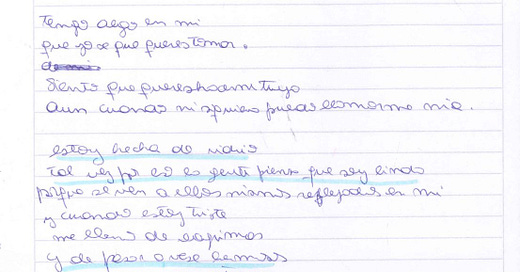 tengo algo en mi
que yo se que queres tomar.
siento que queres hacerme tuyo
aun cuando ni siquiera puedas llamarme mia.
estoy hecha de vidrio
tal vez por eso la gente piensa que soy linda
porque se ven a ellos mismos reflejados en mi
y cuando estoy triste
me lleno de lagrimas
y de peces a veces